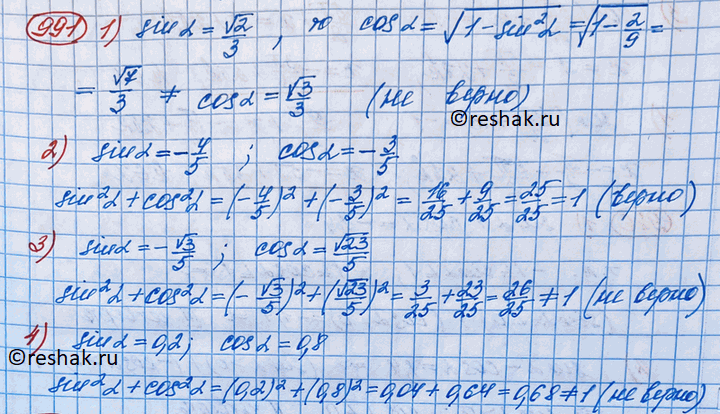 991 1) sin α = √2/3 , то cos α = √(1 - sin²α) = √(1 - 2/9) =
= √7/3 ≠ cos α = √3/3 (не верно)
©reshak.ru
2) sin α = -4/5 ; cos α = -3/5
sin²α + cos²α = (-4/5)² + (-3/5)² = 16/25 + 9/25 = 25/25 = 1 (верно)
3) sin α = -√3/5 ; cos α = √23/5
sin²α + cos²α = (-√3/5)² + (√23/5)² = 3/25 + 23/25 = 26/25 ≠ 1 (не верно)
4) sin α = 0,2; cos α = 0,8
©reshak.ru
sin²α + cos²α = (0,2)² + (0,8)² = 0,04 + 0,64 = 0,68 ≠ 1 (не верно)